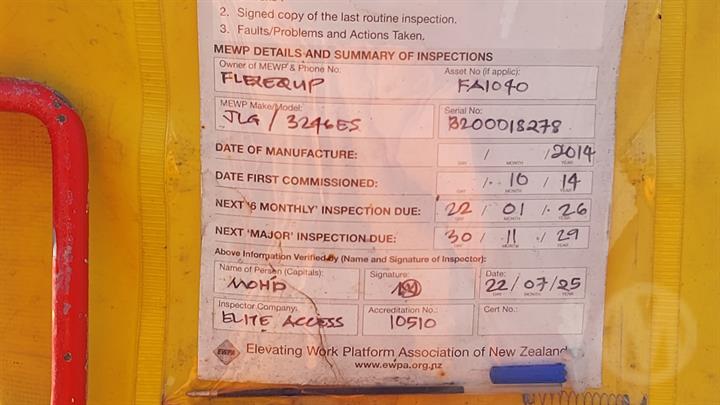 2. Signed copy of the last routine inspection.
3. Faults/Problems and Actions Taken.
MEWP DETAILS AND SUMMARY OF INSPECTIONS
Owner of MEWP & Phone No. Asset No (if applic):
FLEXEQUIP FA1040
MEWP Make/Model: Serial No:
JLG / 3246ES B200018278
DATE OF MANUFACTURE: / / 2014
DAY MONTH YEAR
DATE FIRST COMMISSIONED: / 10 / 14
DAY MONTH YEAR
NEXT '6 MONTHLY' INSPECTION DUE: 22 / 01 / 26
DAY MONTH YEAR
NEXT 'MAJOR' INSPECTION DUE: 30 / 11 / 29
DAY MONTH YEAR
Above Information Verified by (Name and Signature of Inspector):
Name of Person (Capitals): Signature: Date:
MOHD 22/07/25
DAY MONTH YEAR
Inspector Company: Accreditation No.: Cert No.:
ELITE ACCESS 10510
EWPA Elevating Work Platform Association of New Zealand
www.ewpa.org.nz